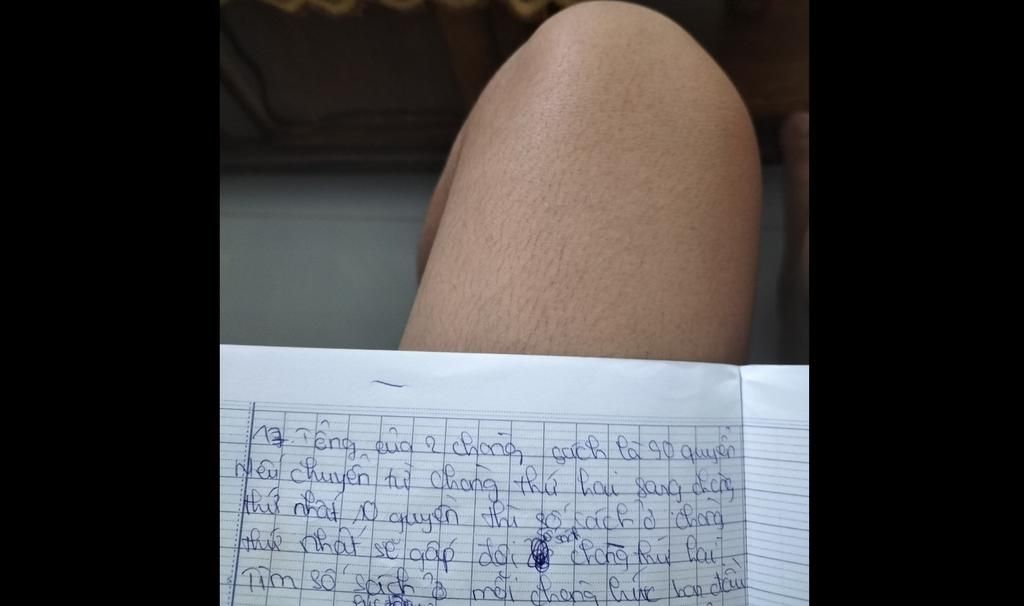 17. Tổng của 2 chồng sách là 90 quyển
nếu chuyển từ chồng thứ hai sang chồng
thứ nhất 10 quyển thì số sách ở chồng
thứ nhất sẽ gấp đôi chồng thứ hai
Tìm số sách ở mỗi chồng lúc ban đầu